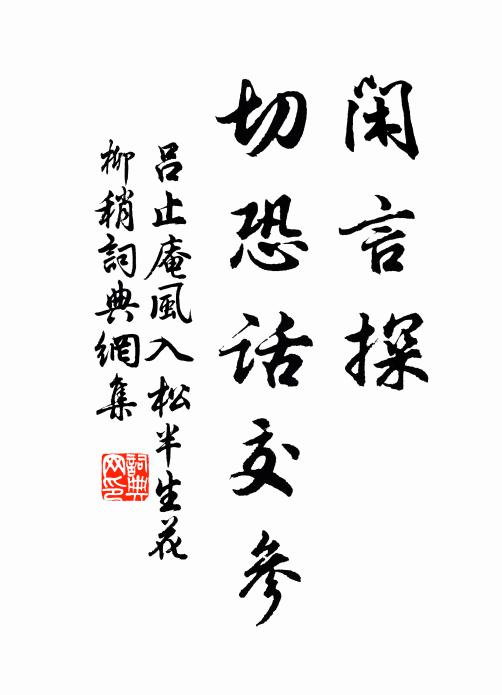 閑言探
切恐話交參
吕止庵風入松半生花
柳稍詞典網集
詞典
网印